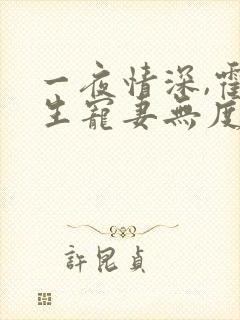 一夜情深,霍
生寵妻無度
許昆貞